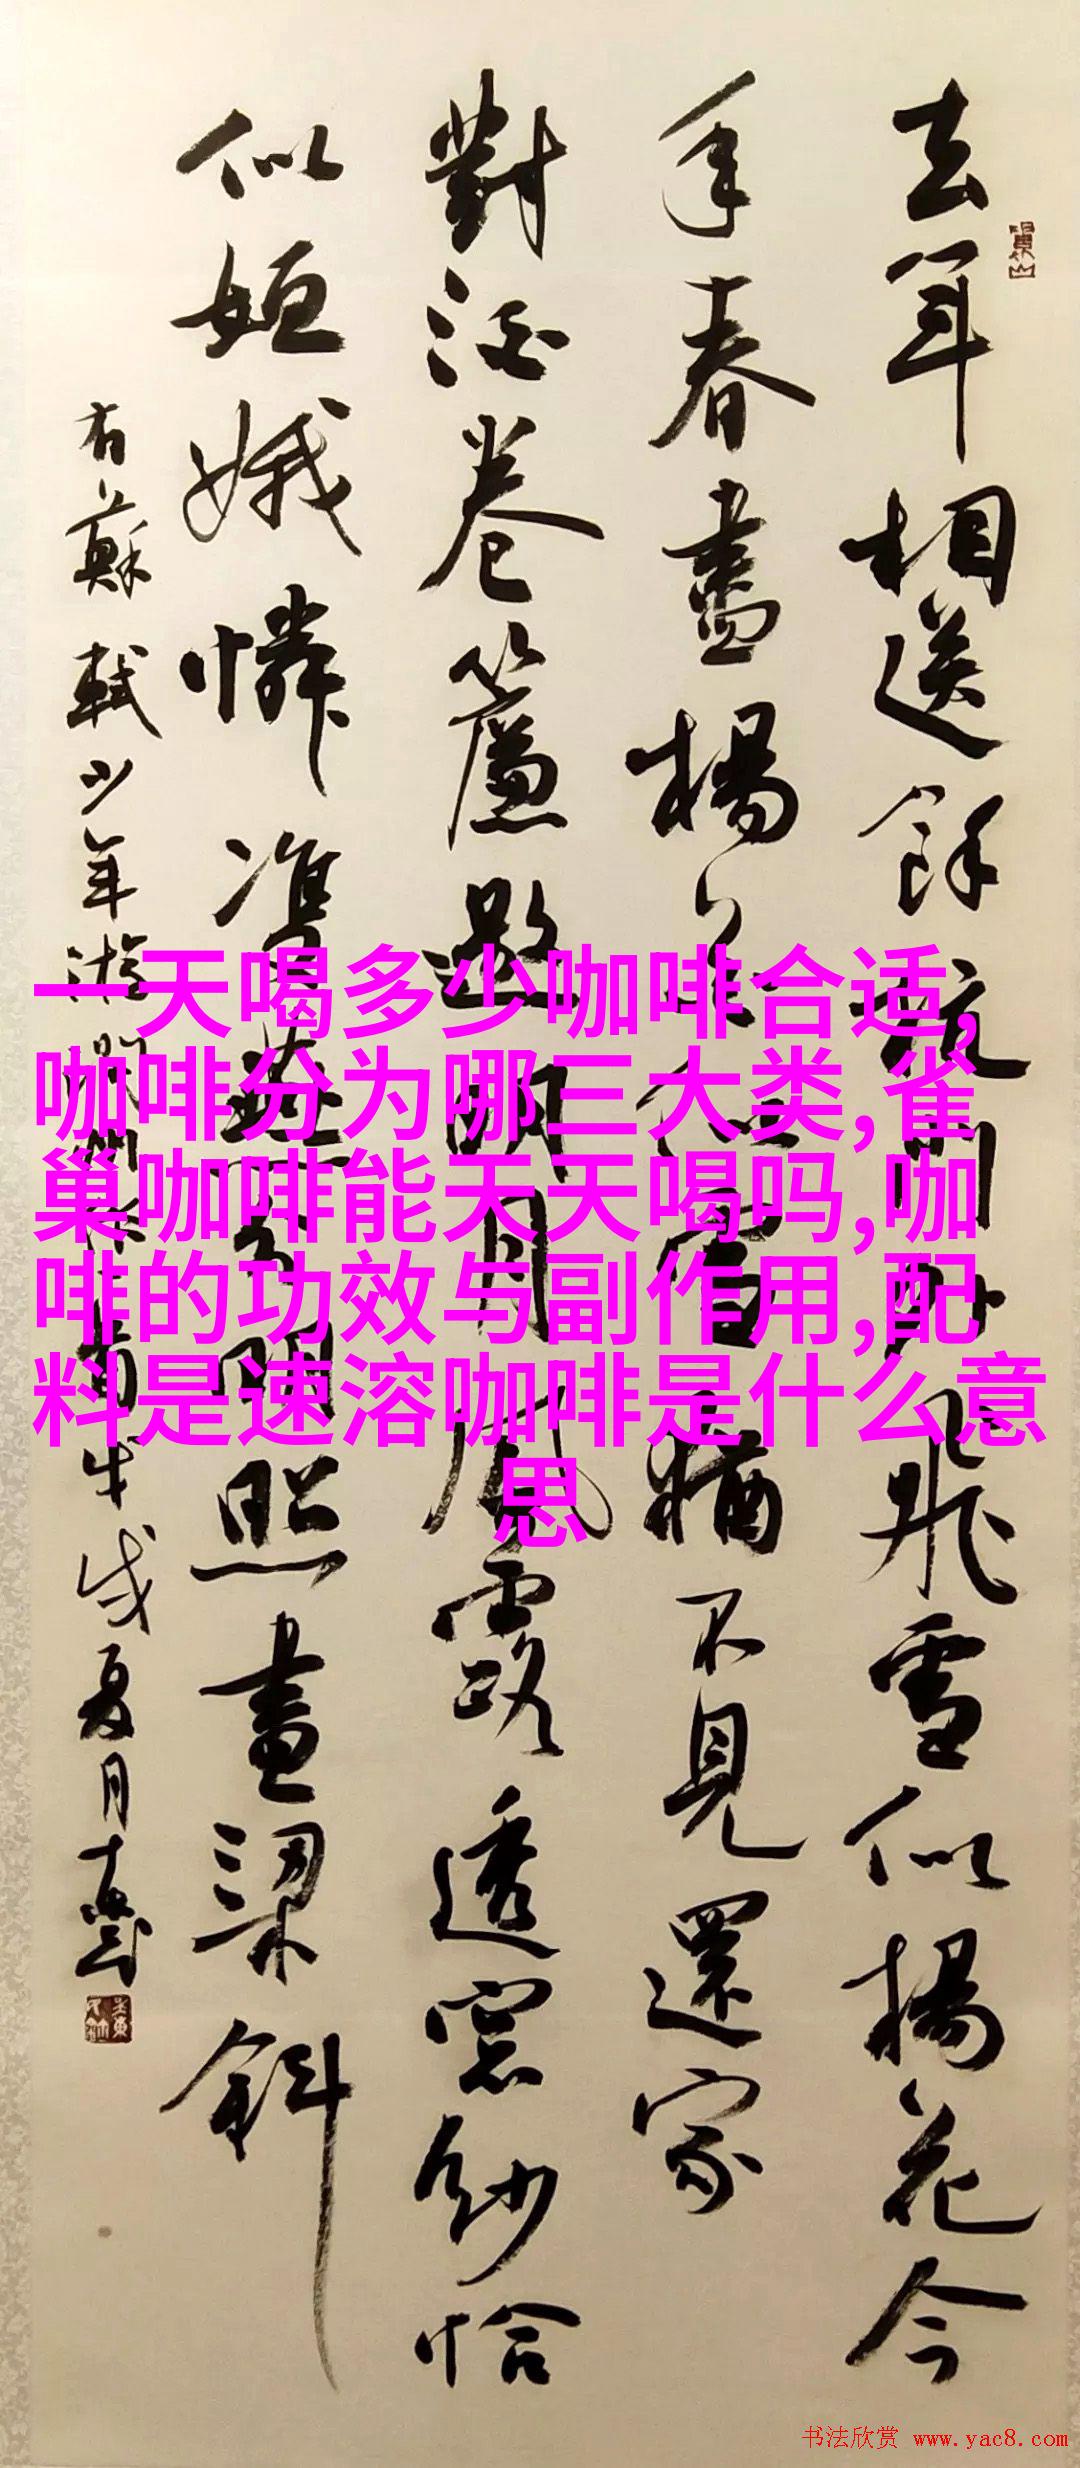 去年相送餘杭門外飛雪似楊花今
年春盡楊花似雪猶不見還家
對酒卷簾邀明月風露透窗紗恰
似姮娥憐雙燕分明照畫梁斜
右蘇軾少年游潤州作 戊戌夏月
一天喝多少咖啡合适,
咖啡分为哪三大类,雀
巢咖啡能天天喝吗,咖
啡的功效与副作用,配
料是速溶咖啡是什么意
思
书法欣赏 www.yac8.com